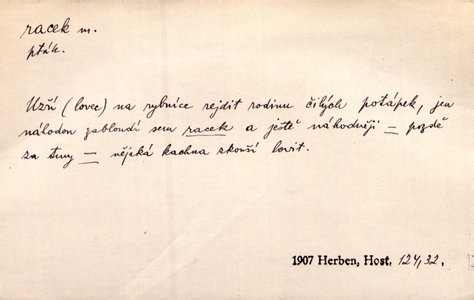 racek m.
pták.
Uzří (lovec) na rybníce rejdit rodinu čilých potápek, jen
náhodou zabloudí sem racek a ještě náhodněji – pozdě
za tmy – nějaká kachna zkouší lovit.
1907 Herben, Host. 124,32.